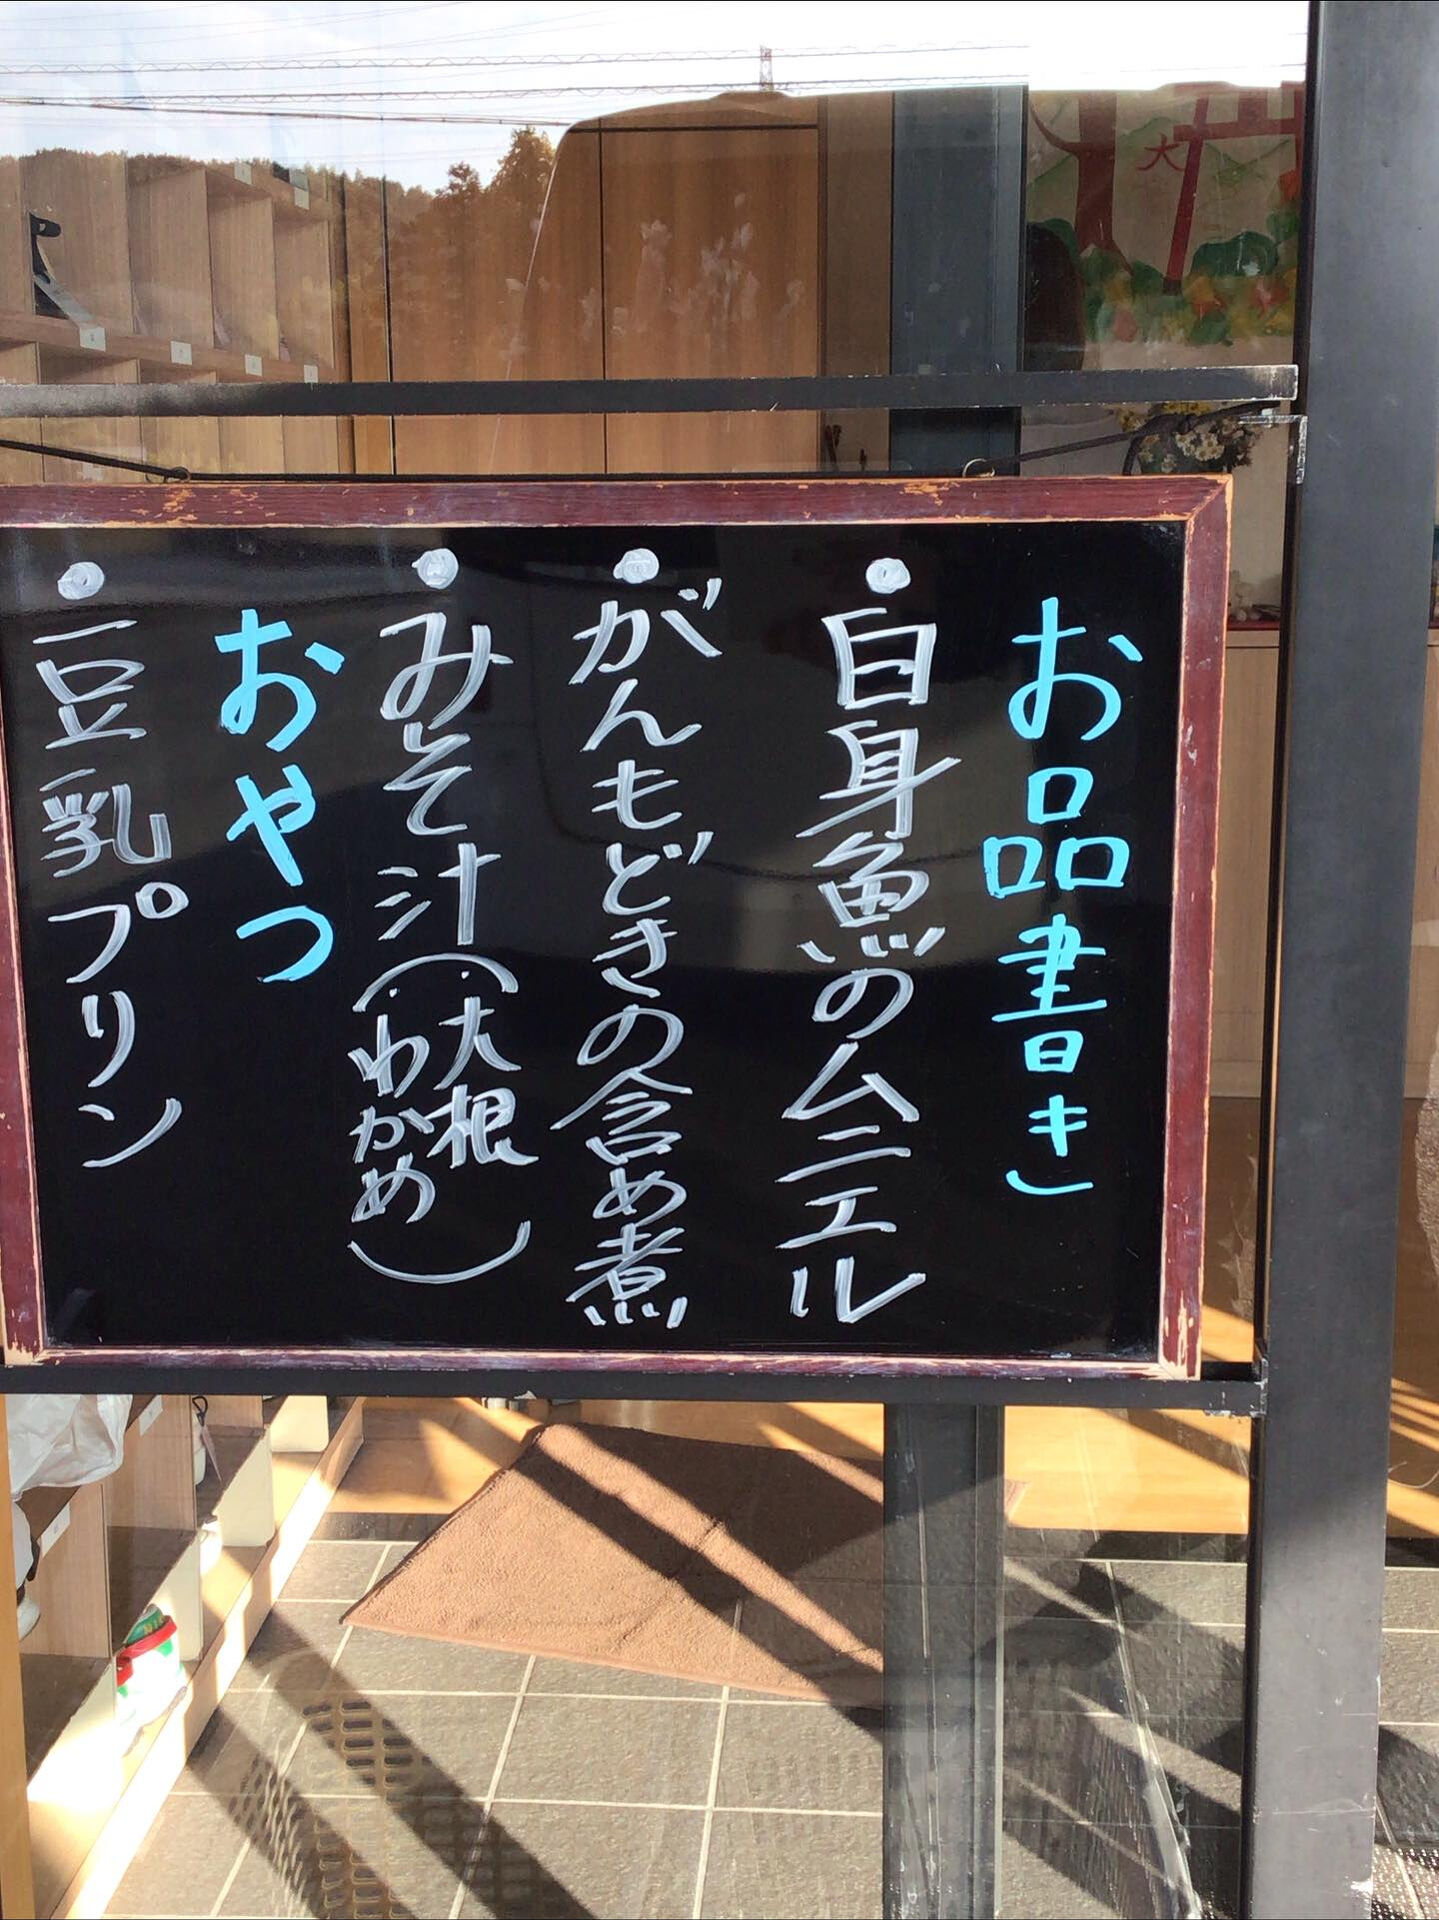 お品書き
白身魚のムニエル
がんもどきの含め煮
みそ汁(・大根
・わかめ)
おやつ
豆乳プリン
大